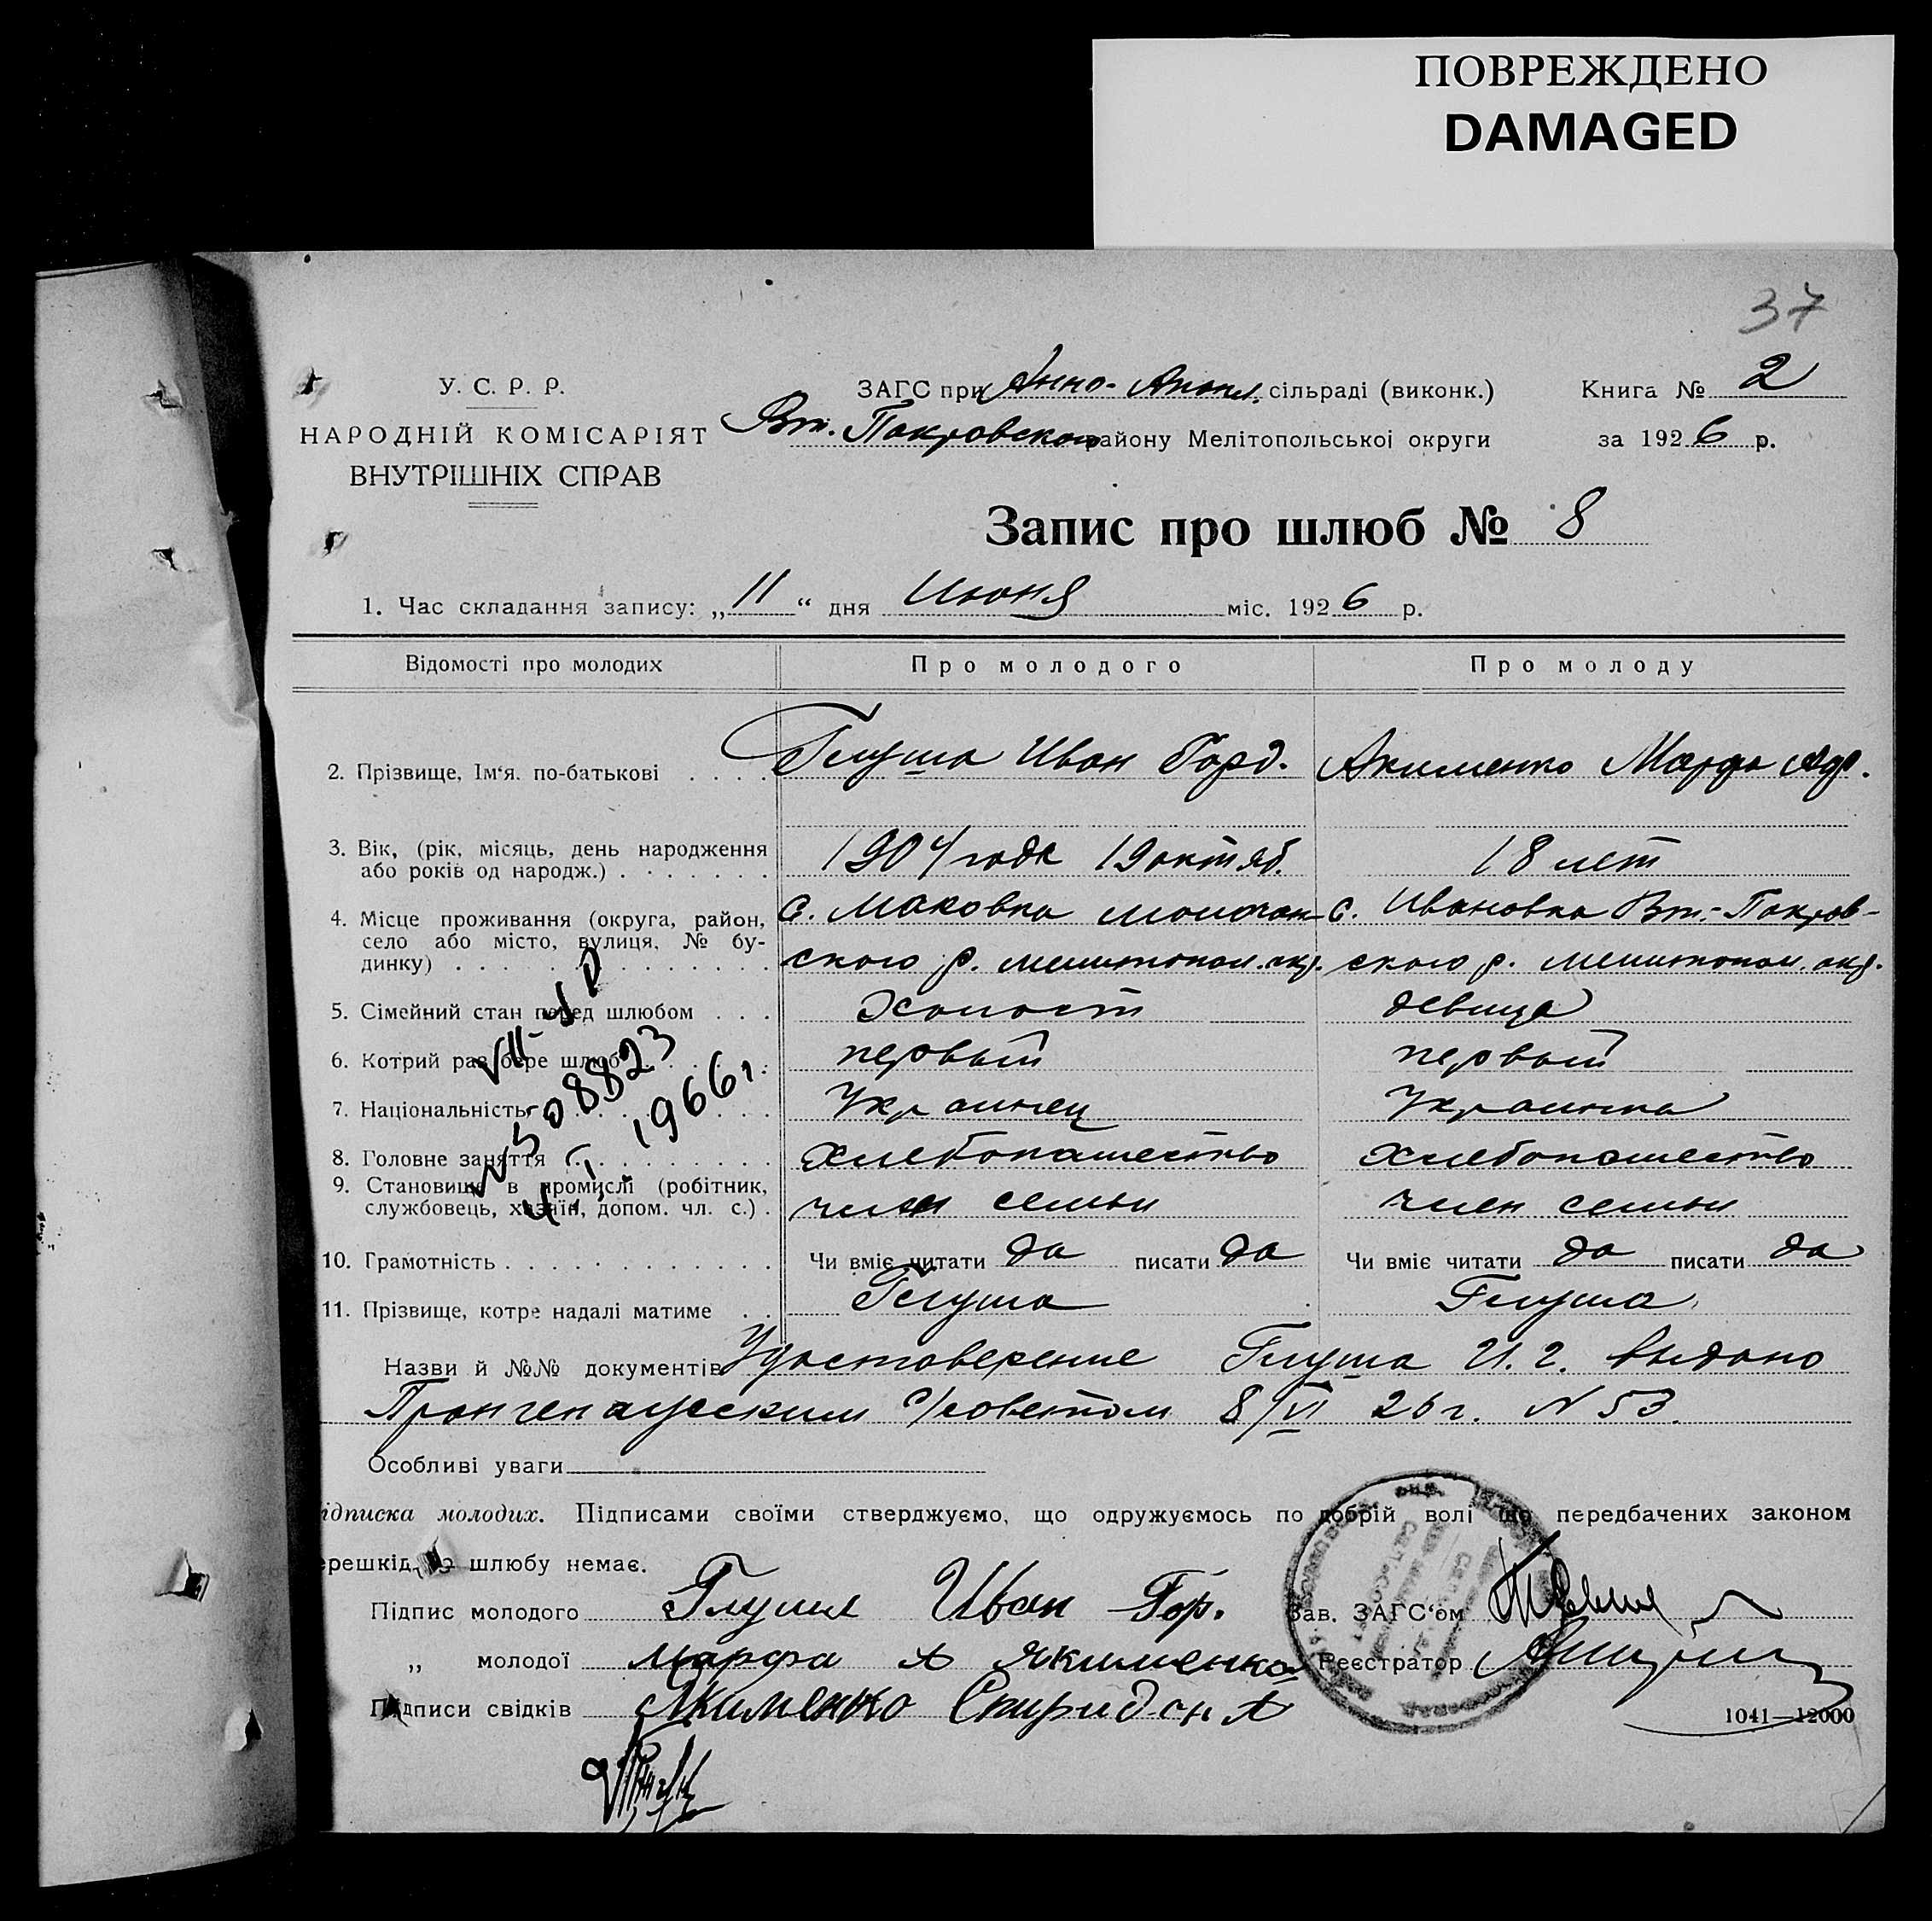 ПОВРЕЖДЕНО
DAMAGED
37
У. С. Р. Р.
НАРОДНІЙ КОМІСАРІЯТ
ВНУТРІШНІХ СПРАВ
ЗАГС при Анно- сільраді (виконк.)
Вт. Покровского району Мелітопольської округи
Книга № 2
за 1926 р.
Запис про шлюб № 8
1. Час складання запису: „11“ дня Июня міс. 1926 р.
Відомості про молодих Про молодого Про молоду
2. Прізвище, Ім‘я. по-батькові . . . . Глуша Иван Горд. Акименко Марфа
3. Вік, (рік, місяць, день народження
або років од народж.) . . . . . . . 1904 года 19 октяб. 18 лет
4. Місце проживання (округа, район, с. Маковка Молочан- с. Ивановка Вт.-Покров-
село або місто, вулиця, № бу-
динку) . . . . . . . . . . . . . ского р. мелитопол. окр. ского р. мелитопол. окр.
5. Сімейний стан перед шлюбом . . . Холост девица
6. Котрий раз бере шлюб . . . . . . первый первый
7. Національність . . . . . . . . . Украинец Украинка
8. Головне заняття . . . . . . . . . Хлебопашество Хлебопашество
9. Становище в промислі (робітник,
службовець, хазяїн, допом. чл. с.) . член семьи член семьи
10. Грамотність . . . . . . . . . . . . Чи вміє читати да писати да Чи вміє читати да писати да
11. Прізвище, котре надалі матиме . . Глуша Глуша
№ 508823
1966 г.
Назви й №№ документів Удостоверение Глуша И. Г. выдано
с/советом 8/VI 26 г. N 53.
Особливі уваги
ідписка молодих. Підписами своїми стверджуємо, що одружуємось по добрій волі що передбачених законом
ерешкід до шлюбу немає.
Підпис молодого Глуша Иван Гор. Зав. ЗАГС‘ом
„ молодої Марфа А Якименко Реєстратор
Підписи свідків Якименко Спиридон А
1041—12000